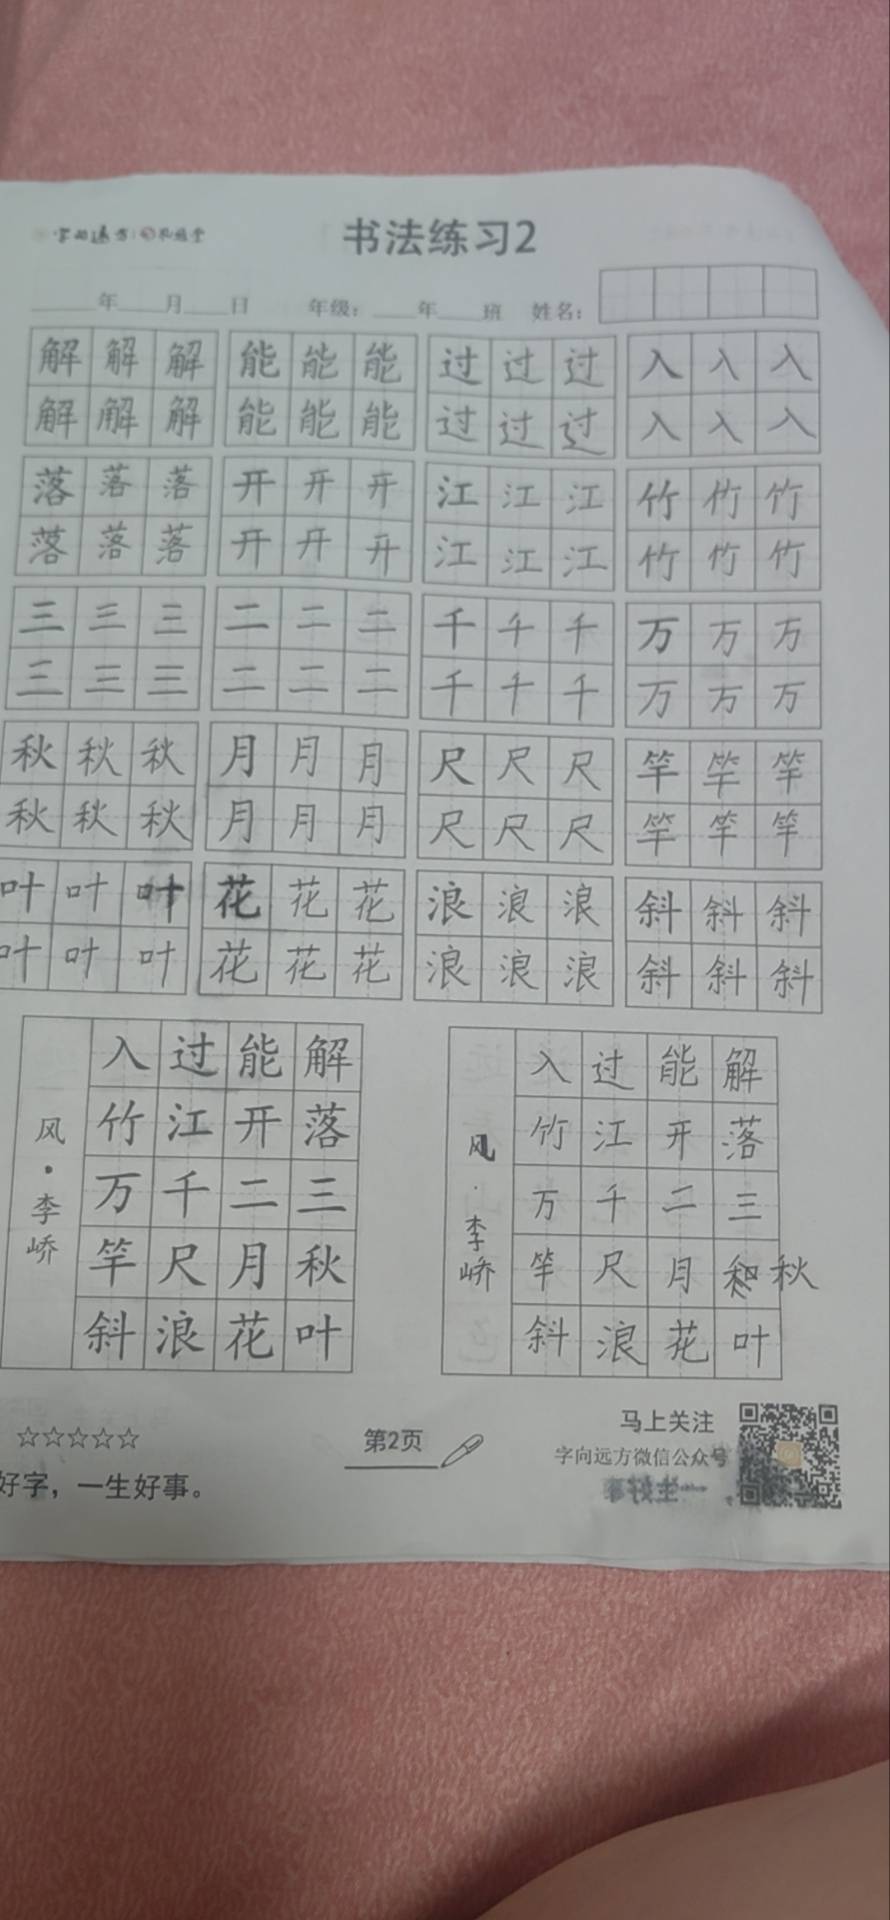 字向远方
书法练习2
年 月 日 年级： 年 班 姓名：
解 解 解 能 能 能 过 过 过 入 入 入
解 解 解 能 能 能 过 过 过 入 入 入
落 落 落 开 开 开 江 江 江 竹 竹 竹
落 落 落 开 开 开 江 江 江 竹 竹 竹
三 三 三 二 二 二 千 千 千 万 万 万
三 三 三 二 二 二 千 千 千 万 万 万
秋 秋 秋 月 月 月 尺 尺 尺 竿 竿 竿
秋 秋 秋 月 月 月 尺 尺 尺 竿 竿 竿
叶 叶 叶 花 花 花 浪 浪 浪 斜 斜 斜
叶 叶 叶 花 花 花 浪 浪 浪 斜 斜 斜
解落三秋叶
能开二月花
过江千尺浪
入竹万竿斜
风·李峤
解落三秋叶
秋
能开二月花
过江千尺浪
入竹万竿斜
风·李峤
☆☆☆☆☆
好字，一生好事。
第2页
马上关注
字向远方微信公众号